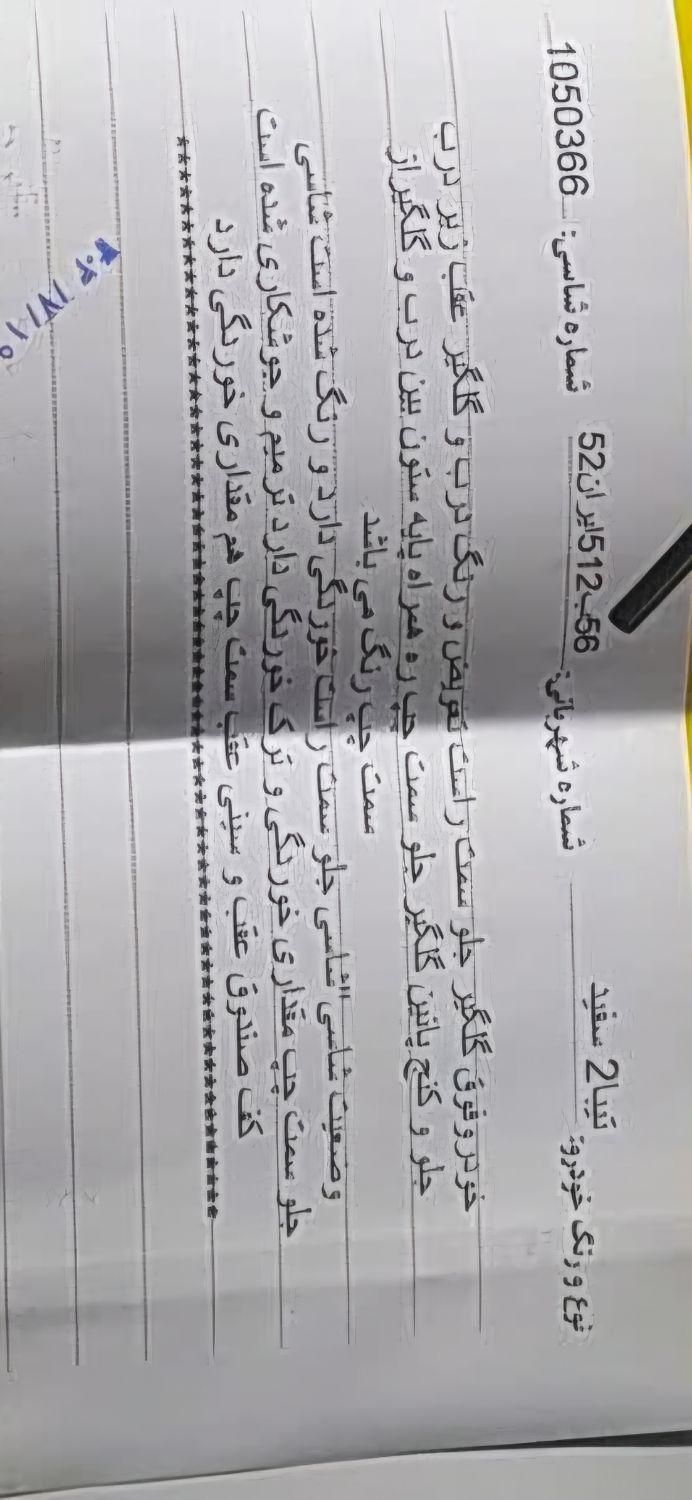 نوع و رنگ خودرو: تیبا2 سفید شماره شهربانی: 56ب512ایران52 شماره شاسی: 1050366
خودرو فوق گلگیر جلو سمت راست تعویض و رنگ درب و گلگیر عقب زیر درب
جلو و کنج پائین گلگیر جلو سمت چپ ره همراه پایه ستون بین درب و گلگیر از
سمت چپ رنگ می باشد
وضعیت شاسی "شاسی جلو سمت راست خورنگی دارد و رنگ شده است شاسی
جلو سمت چپ مقداری خورنگی و ترک خورنگی دارد ترمیم و جوشکاری شده است
کف صندوق عقب و سینی عقب سمت چپ هم مقداری خورنگی دارد